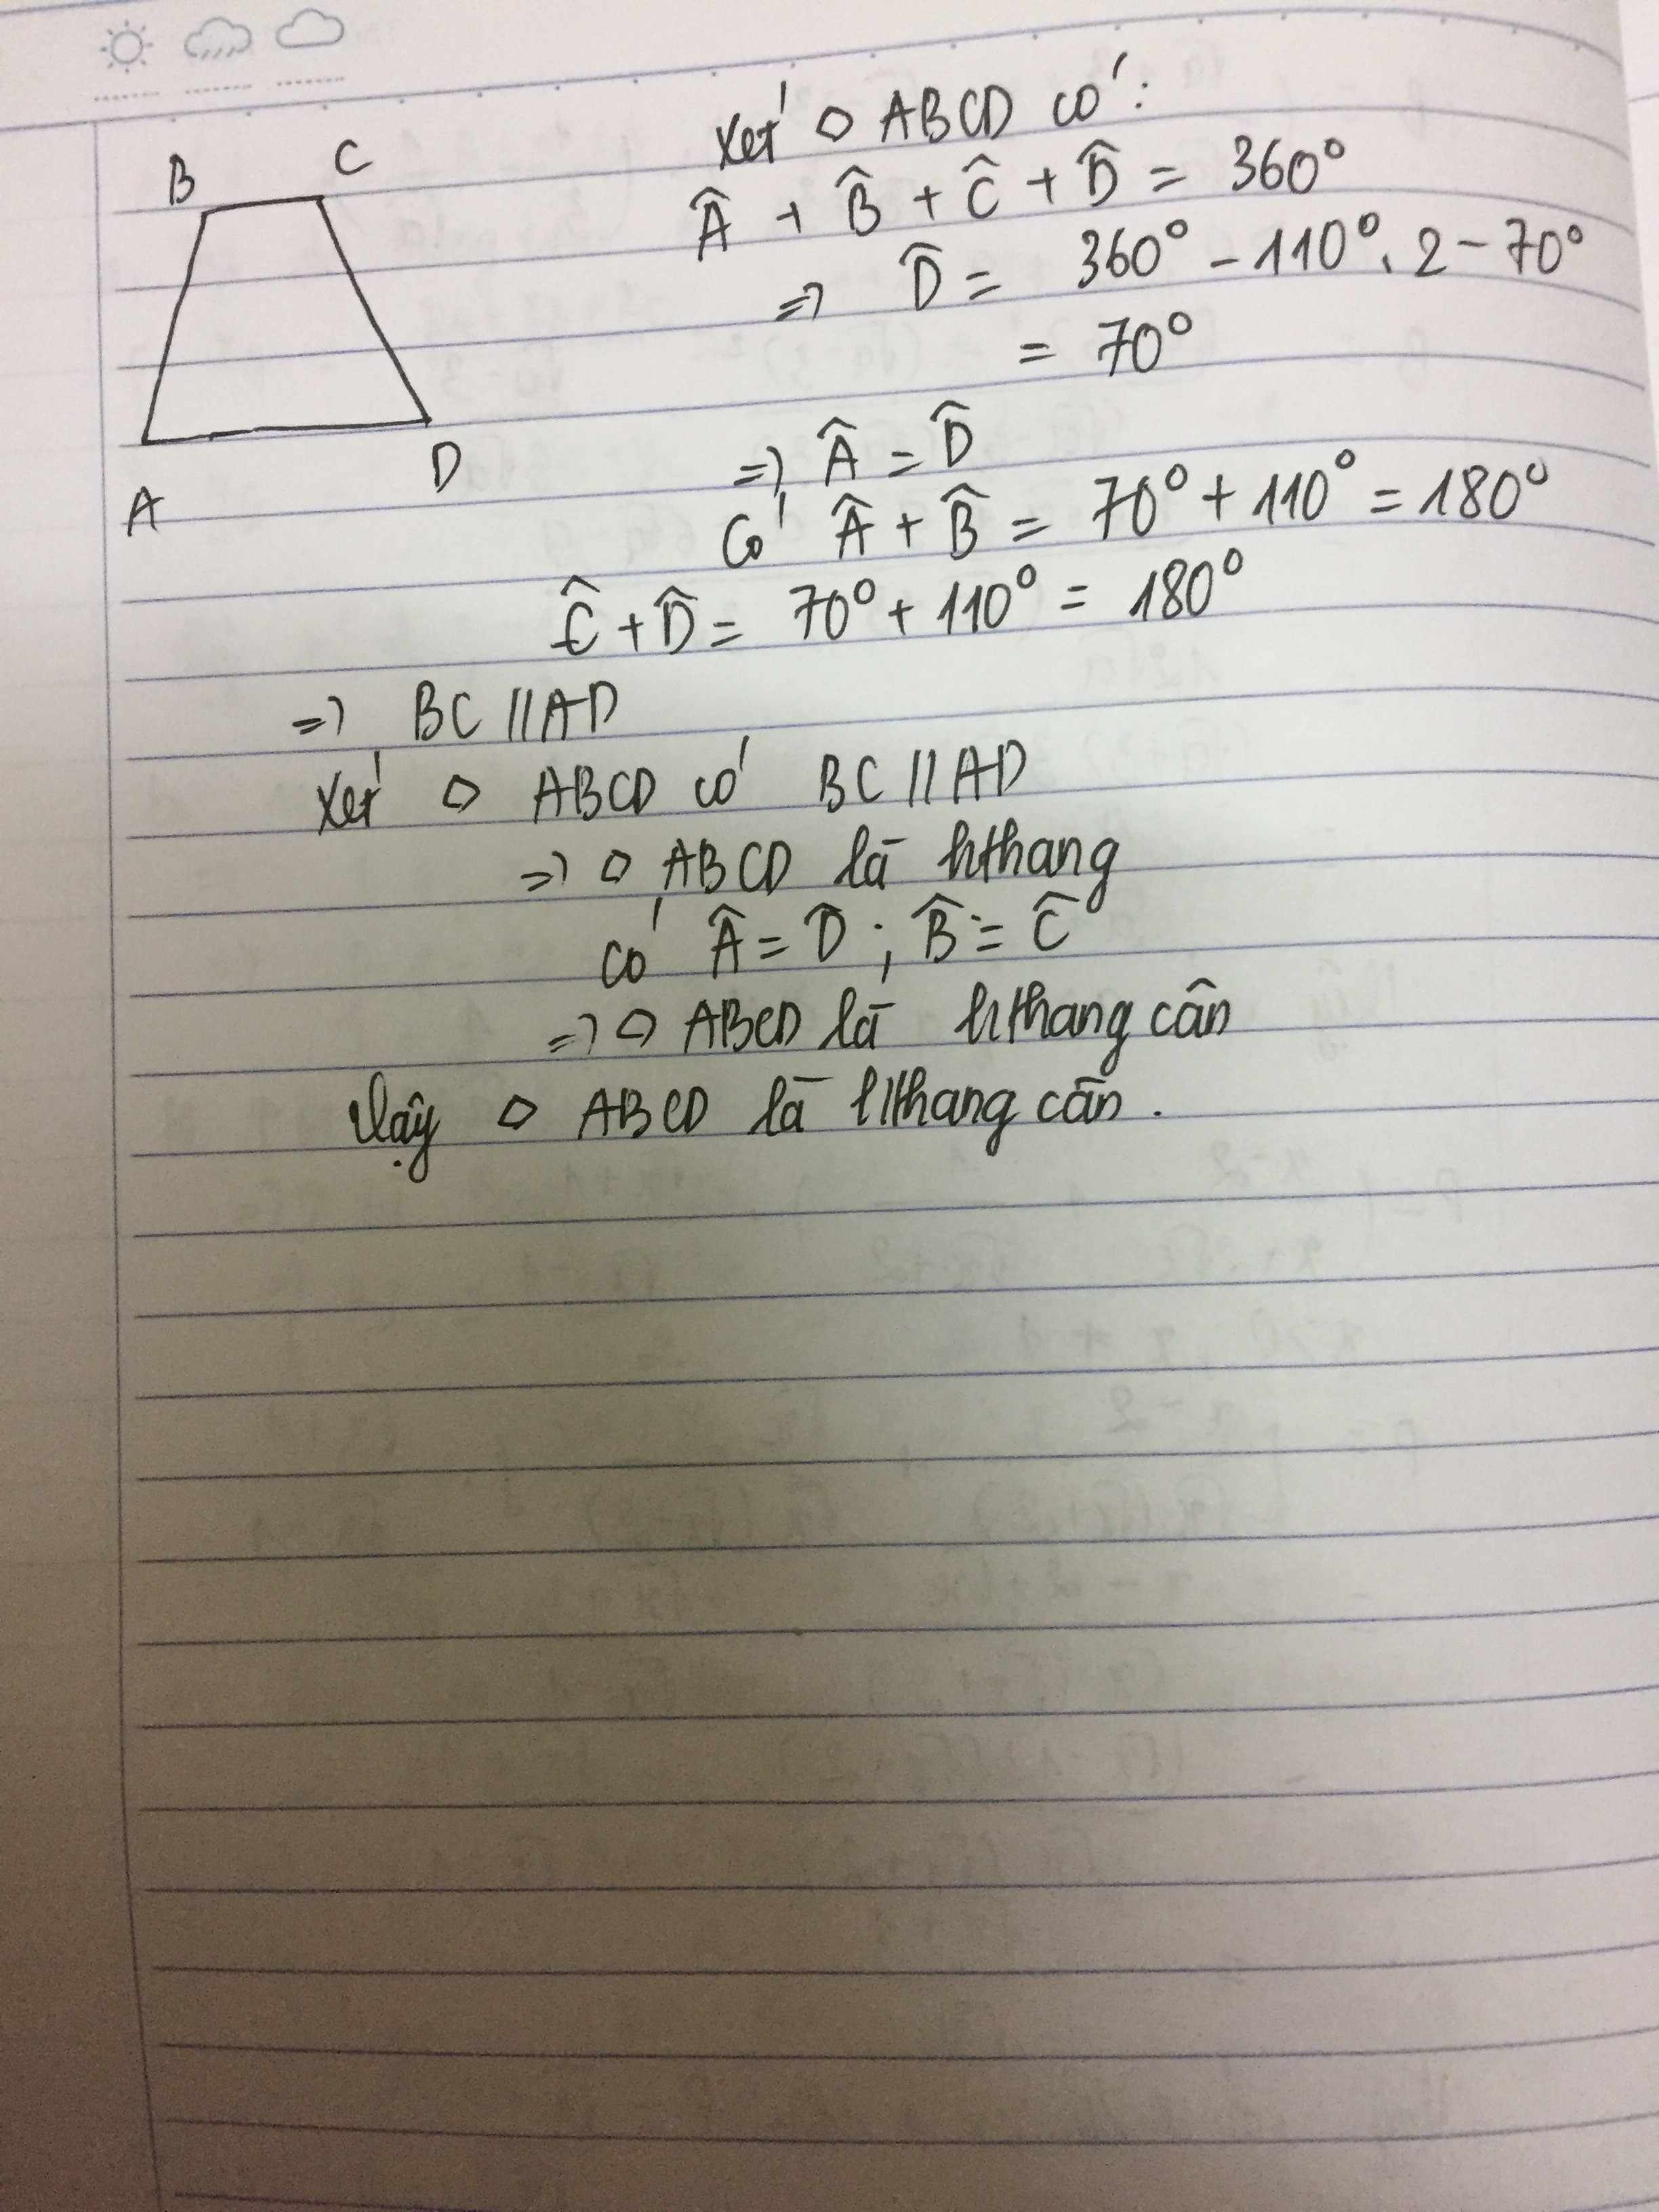 B C
A D
Xét ◇ ABCD có:
Â + B̂ + Ĉ + D̂ = 360°
=> D̂ = 360° - 110° . 2 - 70°
= 70°
=> Â = D̂
Có Â + B̂ = 70° + 110° = 180°
Ĉ + D̂ = 70° + 110° = 180°
=> BC // AD
Xét ◇ ABCD có BC // AD
=> ◇ ABCD là hthang
có Â = D̂ ; B̂ = Ĉ
=> ◇ ABCD là hthang cân
Vậy ◇ ABCD là hthang cân .